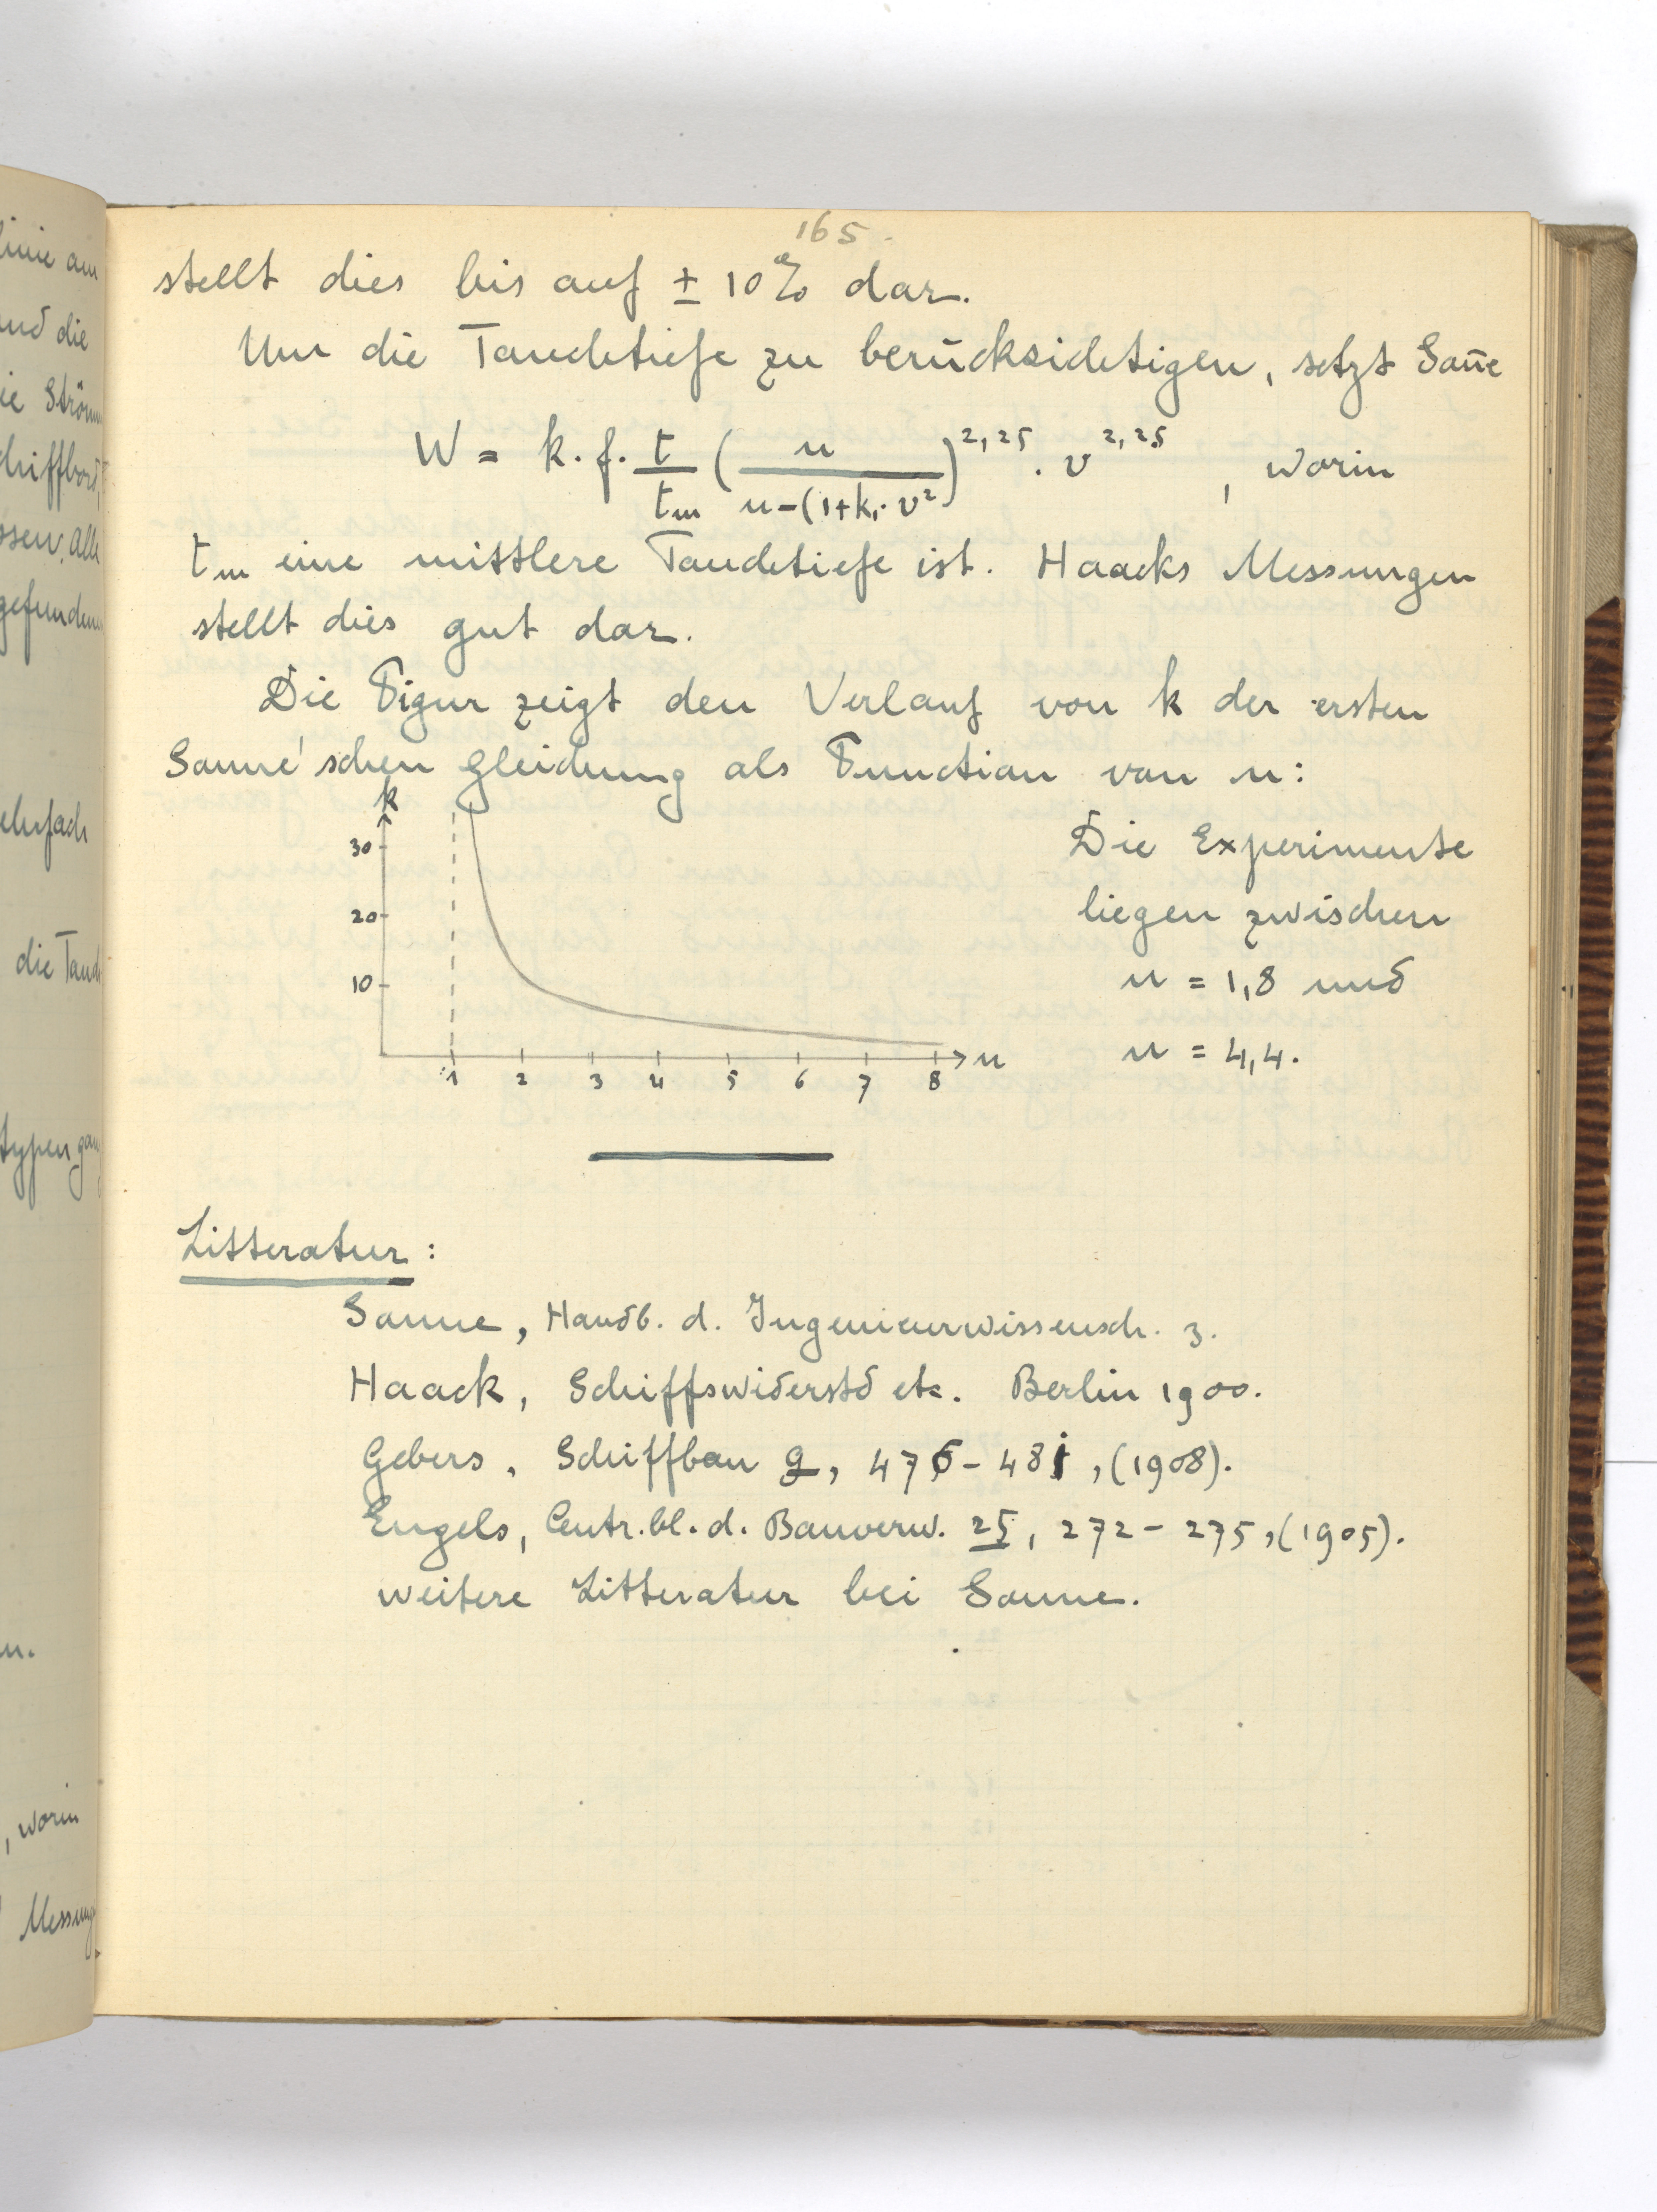 165.
stellt dies bis auf ± 10% dar.
Um die Tauchtiefe zu berücksichtigen, setzt Son̄e
W = k. f. t/tm (n/n-(1+k₁.v²)^2,25 . v^2,25, worin
tm eine mittlere Tauchtiefe ist. Haacks Messungen
stellt dies gut dar.
Die Figur zeigt den Verlauf von k der ersten
Sonne'schen Gleichung als Function von n:
k
30
20
10
1 2 3 4 5 6 7 8 n
Die Experimente
liegen zwischen
n = 1,8 und
n = 4,4.
Litteratur:
Sonne, Handb. d. Ingenieurwissensch. 3.
Haack, Schiffswiderstd etc. Berlin 1900.
Gebers, Schiffbau 9, 476-481, (1908).
Engels, Centr.bl. d. Bauverw. 25, 272-275, (1905).
weitere Litteratur bei Sonne.
linie am
und die
die Ström
chiffbord,
ssen. Alle
gefunden
ehrfach
die Tauch
typen gan
n.
, worin
Messung